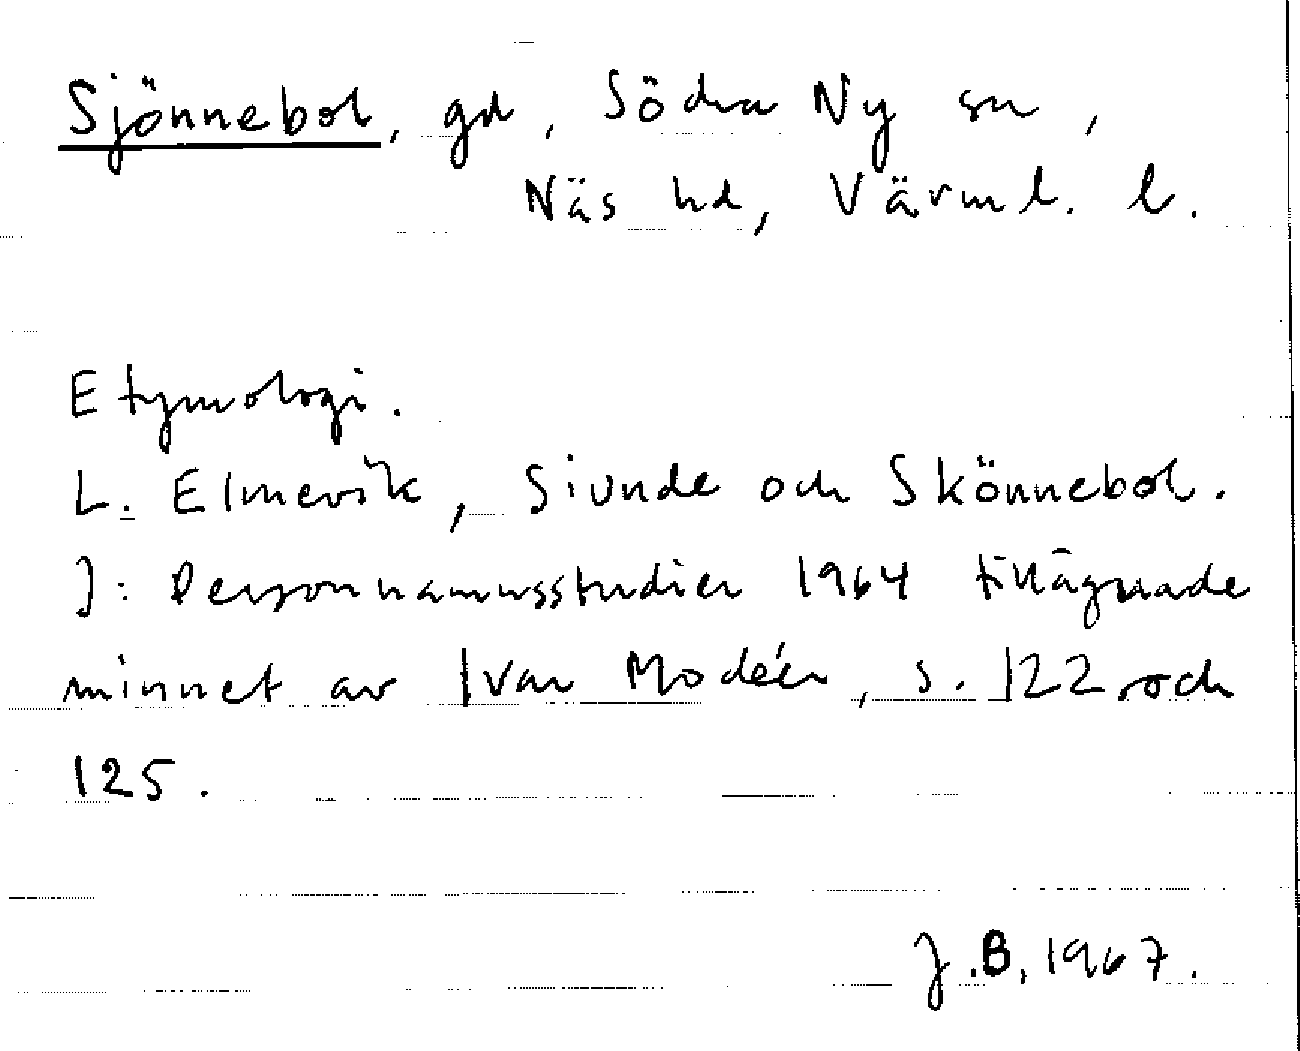 Sjönnebol, gd, Södra Ny sn,
Näs hd, Värml. l.
Etymologi.
L. Elmevik, Siunde och Skönnebol.
I: Personnamnsstudier 1964 tillägnade
minnet av Ivar Modéer, s. 122 och
125.
J.B. 1967.